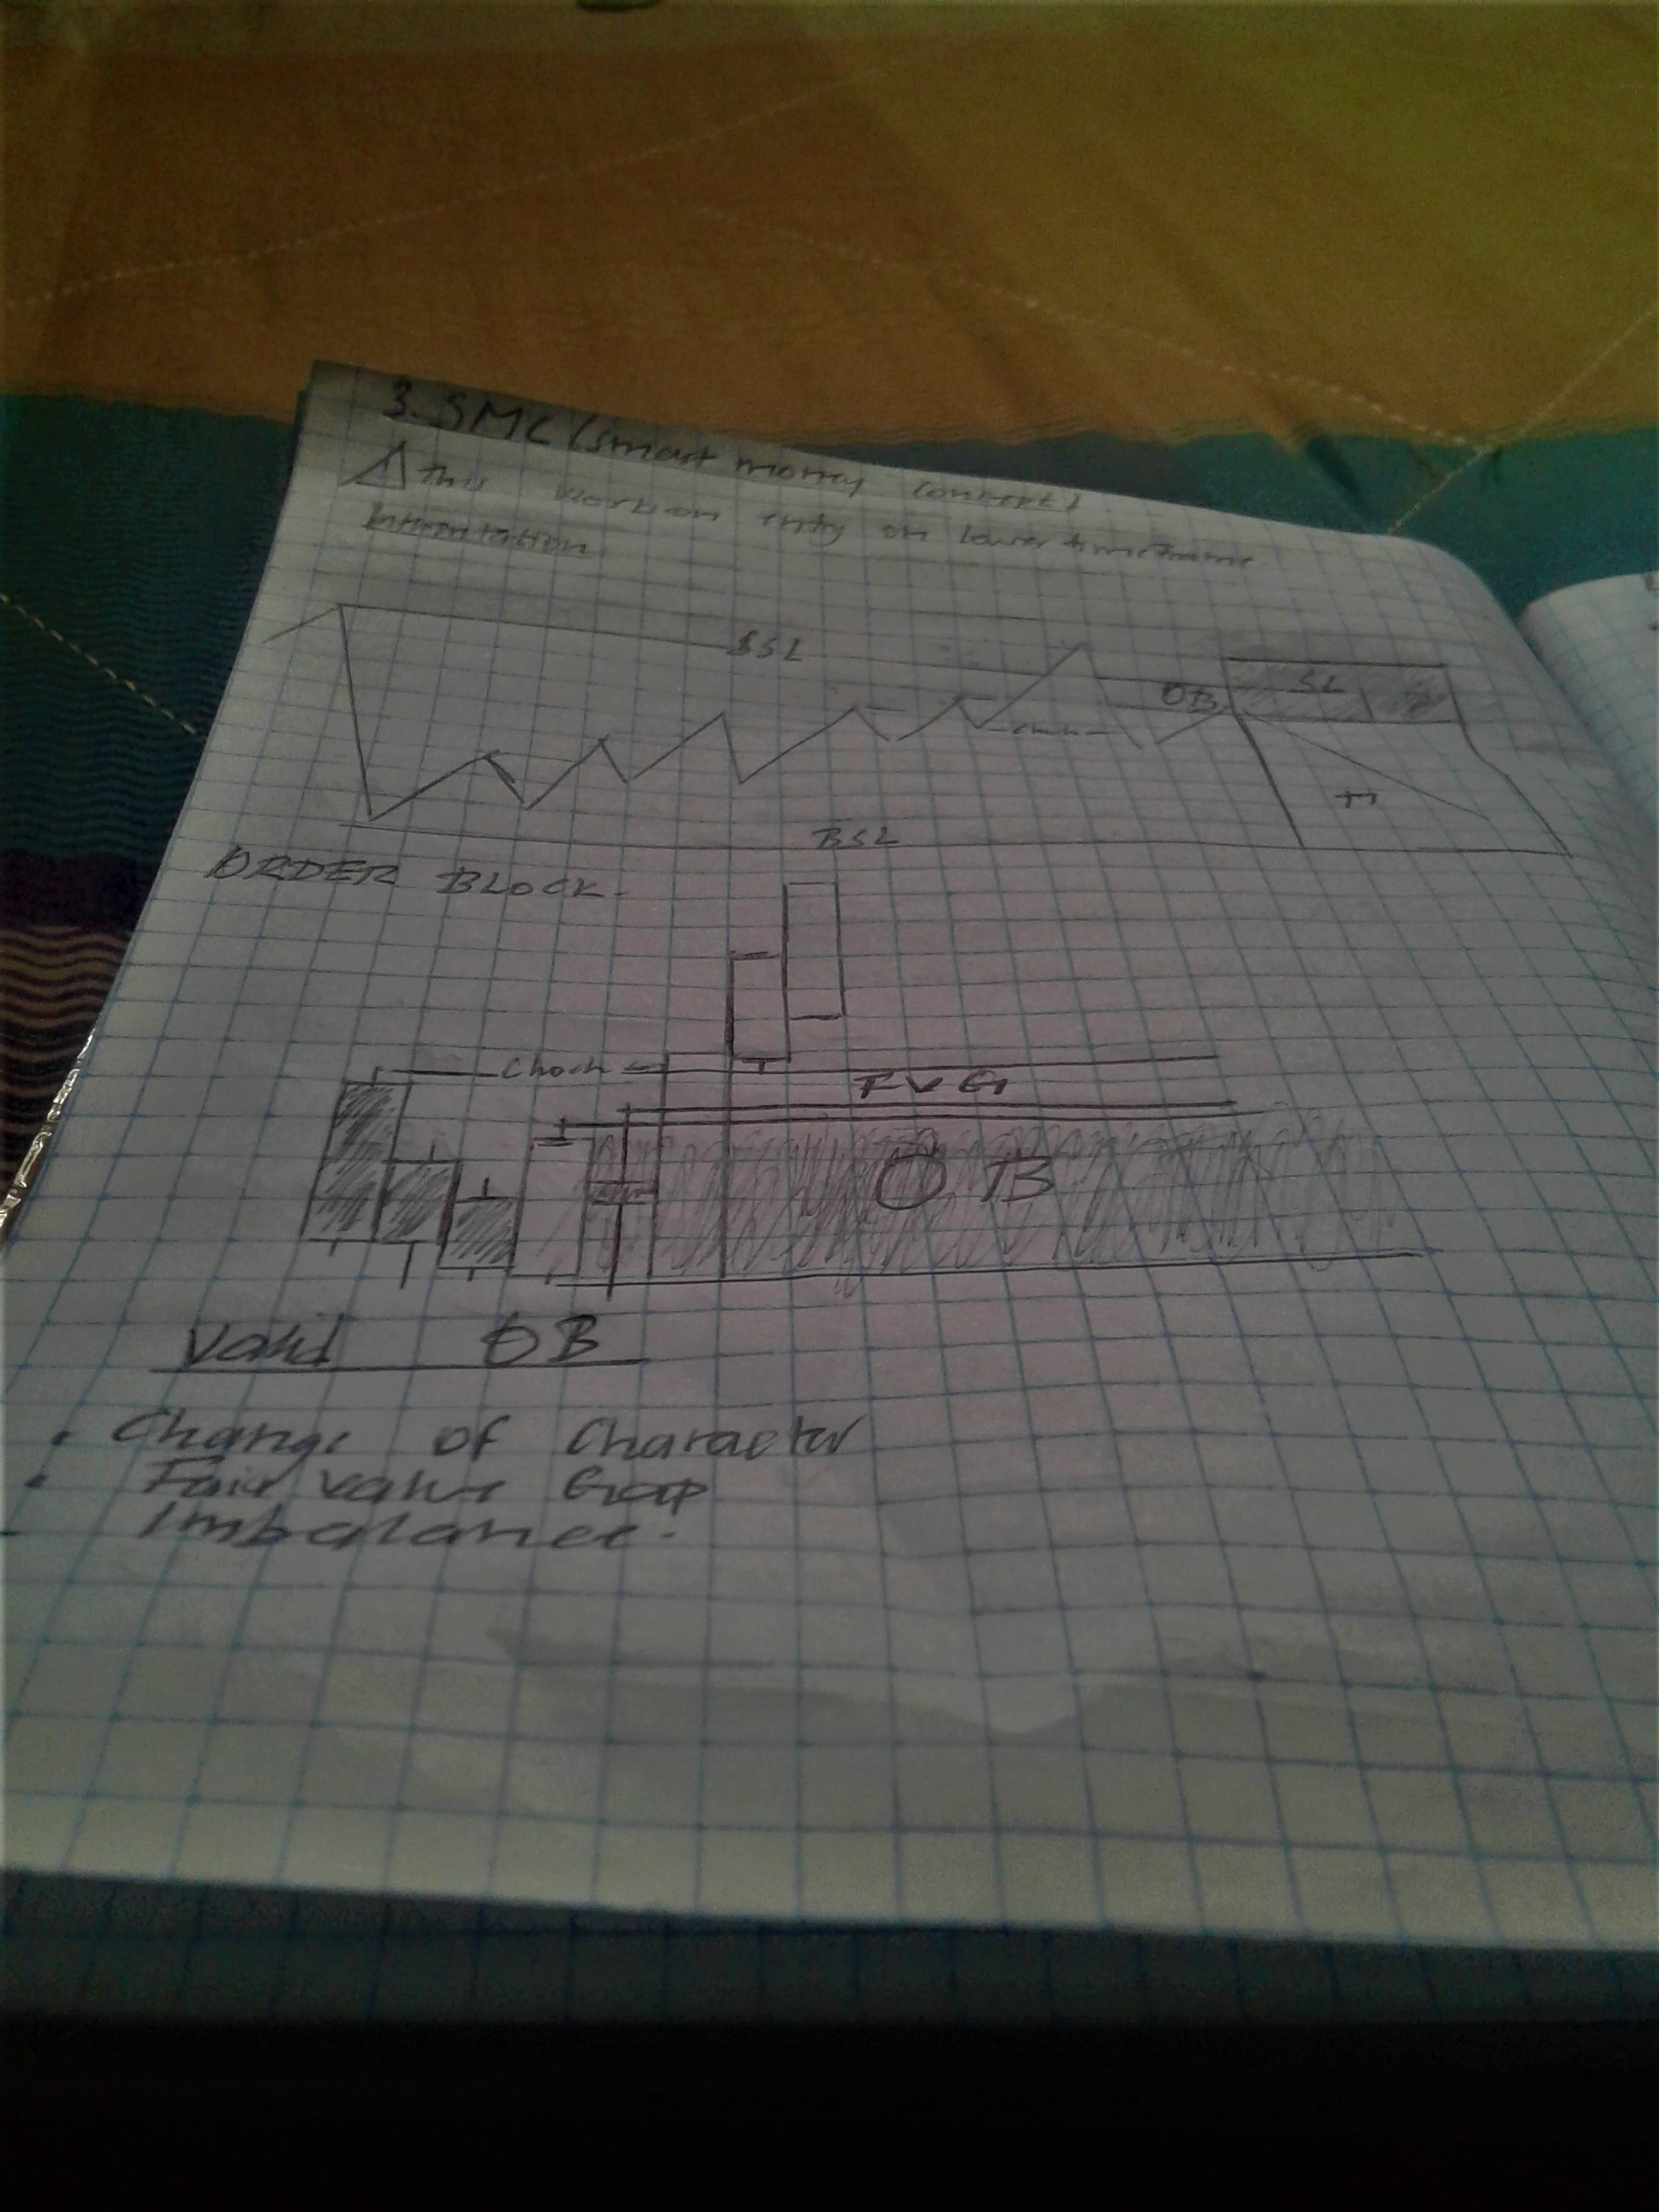 3. SMC (smart money concept)
⚠ This work on entry on lower timeframe.
SSL
OB
SL
BSL
ORDER BLOCK.
Choch
FVG
OB
Valid OB
• Change of Character
• Fair value Gap
- Imbalance.